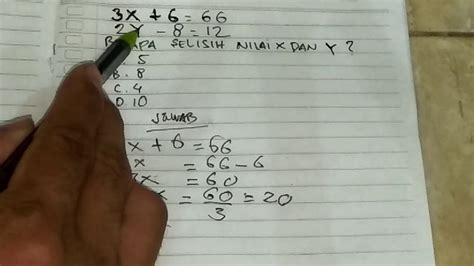 3X + 6 = 66
2Y - 8 = 12
SELISIH NILAI X DAN Y ?
5
B. 8
C. 4
D 10
JAWAB
x + 6 = 66
x = 66 - 6
x = 60
x = 60/3 = 20